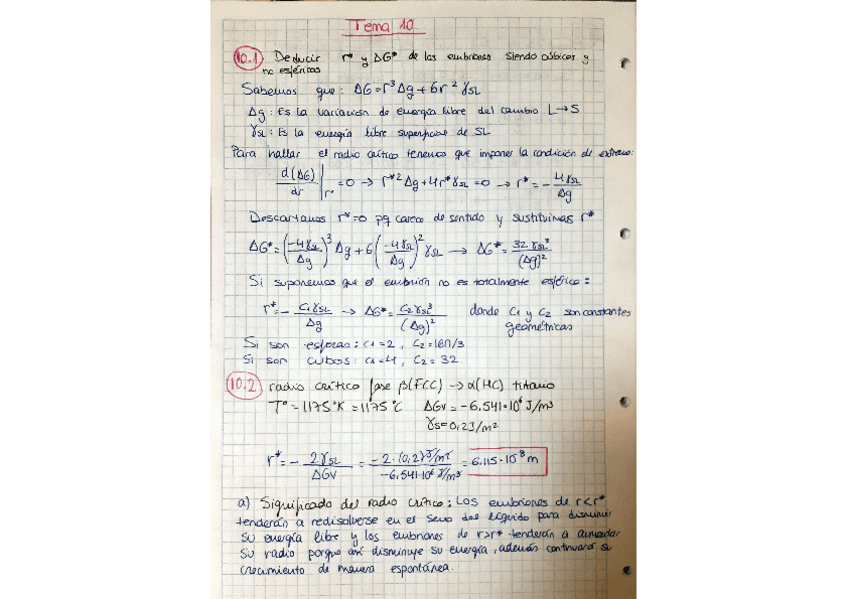 Tema 10
10.1 Deducir r* y ΔG* de los embriones siendo cúbicos y
no esféricos
Sabemos que: ΔG=r³Δg+6r²γSL
Δg: Es la variación de energía libre del cambio L→S
γSL: Es la energía libre superficial de SL
Para hallar el radio crítico tenemos que imponer la condición de extremo:
d(ΔG)/dr |r* =0 → r*²Δg+4r*γSL=0 → r*=-4γSL/Δg
Descartamos r*=0 pq carece de sentido y sustituimos r*
ΔG*=(-4γSL/Δg)³Δg+6(-4γSL/Δg)²γSL → ΔG*=32γSL³/(Δg)²
Si suponemos que el embrión no es totalmente esférico:
r*=-C1γSL/Δg → ΔG*=C2γSL³/(Δg)² donde C1 y C2 son constantes
geométricas
Si son esferas: C1=2, C2=16Π/3
Si son cubos: C1=4, C2=32
10.2 radio crítico fase β(FCC)→α(HC) titanio
Tº=1175ºK=1175ºC ΔGv=-6.541·10⁶J/m³
γs=0,2J/m²
r*=-2γSL/ΔGV=-2·(0,2)J/m²/-6.541·10⁶J/m³=6.115·10⁻⁸m
a) Significado del radio crítico: Los embriones de r<r*
tenderán a redisolverse en el seno del líquido para disminuir
su energía libre y los embriones de r>r* tenderán a aumentar
su radio porque así disminuye su energía, además continuará su
crecimiento de manera espontánea.